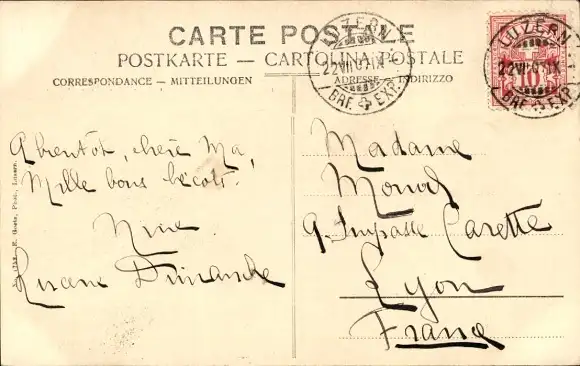 CARTE POSTALE
POSTKARTE — CARTOLINA POSTALE
CORRESPONDANCE — MITTEILUNGEN
ADRESSE — INDIRIZZO
LUZERN
22 VII
BRF. EXP.
LUZERN
22 VII
BRF. EXP.
10
A bientôt, chère Ma,
Mille bons bécots.
Nine
Lucerne Dimanche
Madame
Monod
9. Impasse Carette
Lyon
France
E. Goetz, Phot., Luzern.